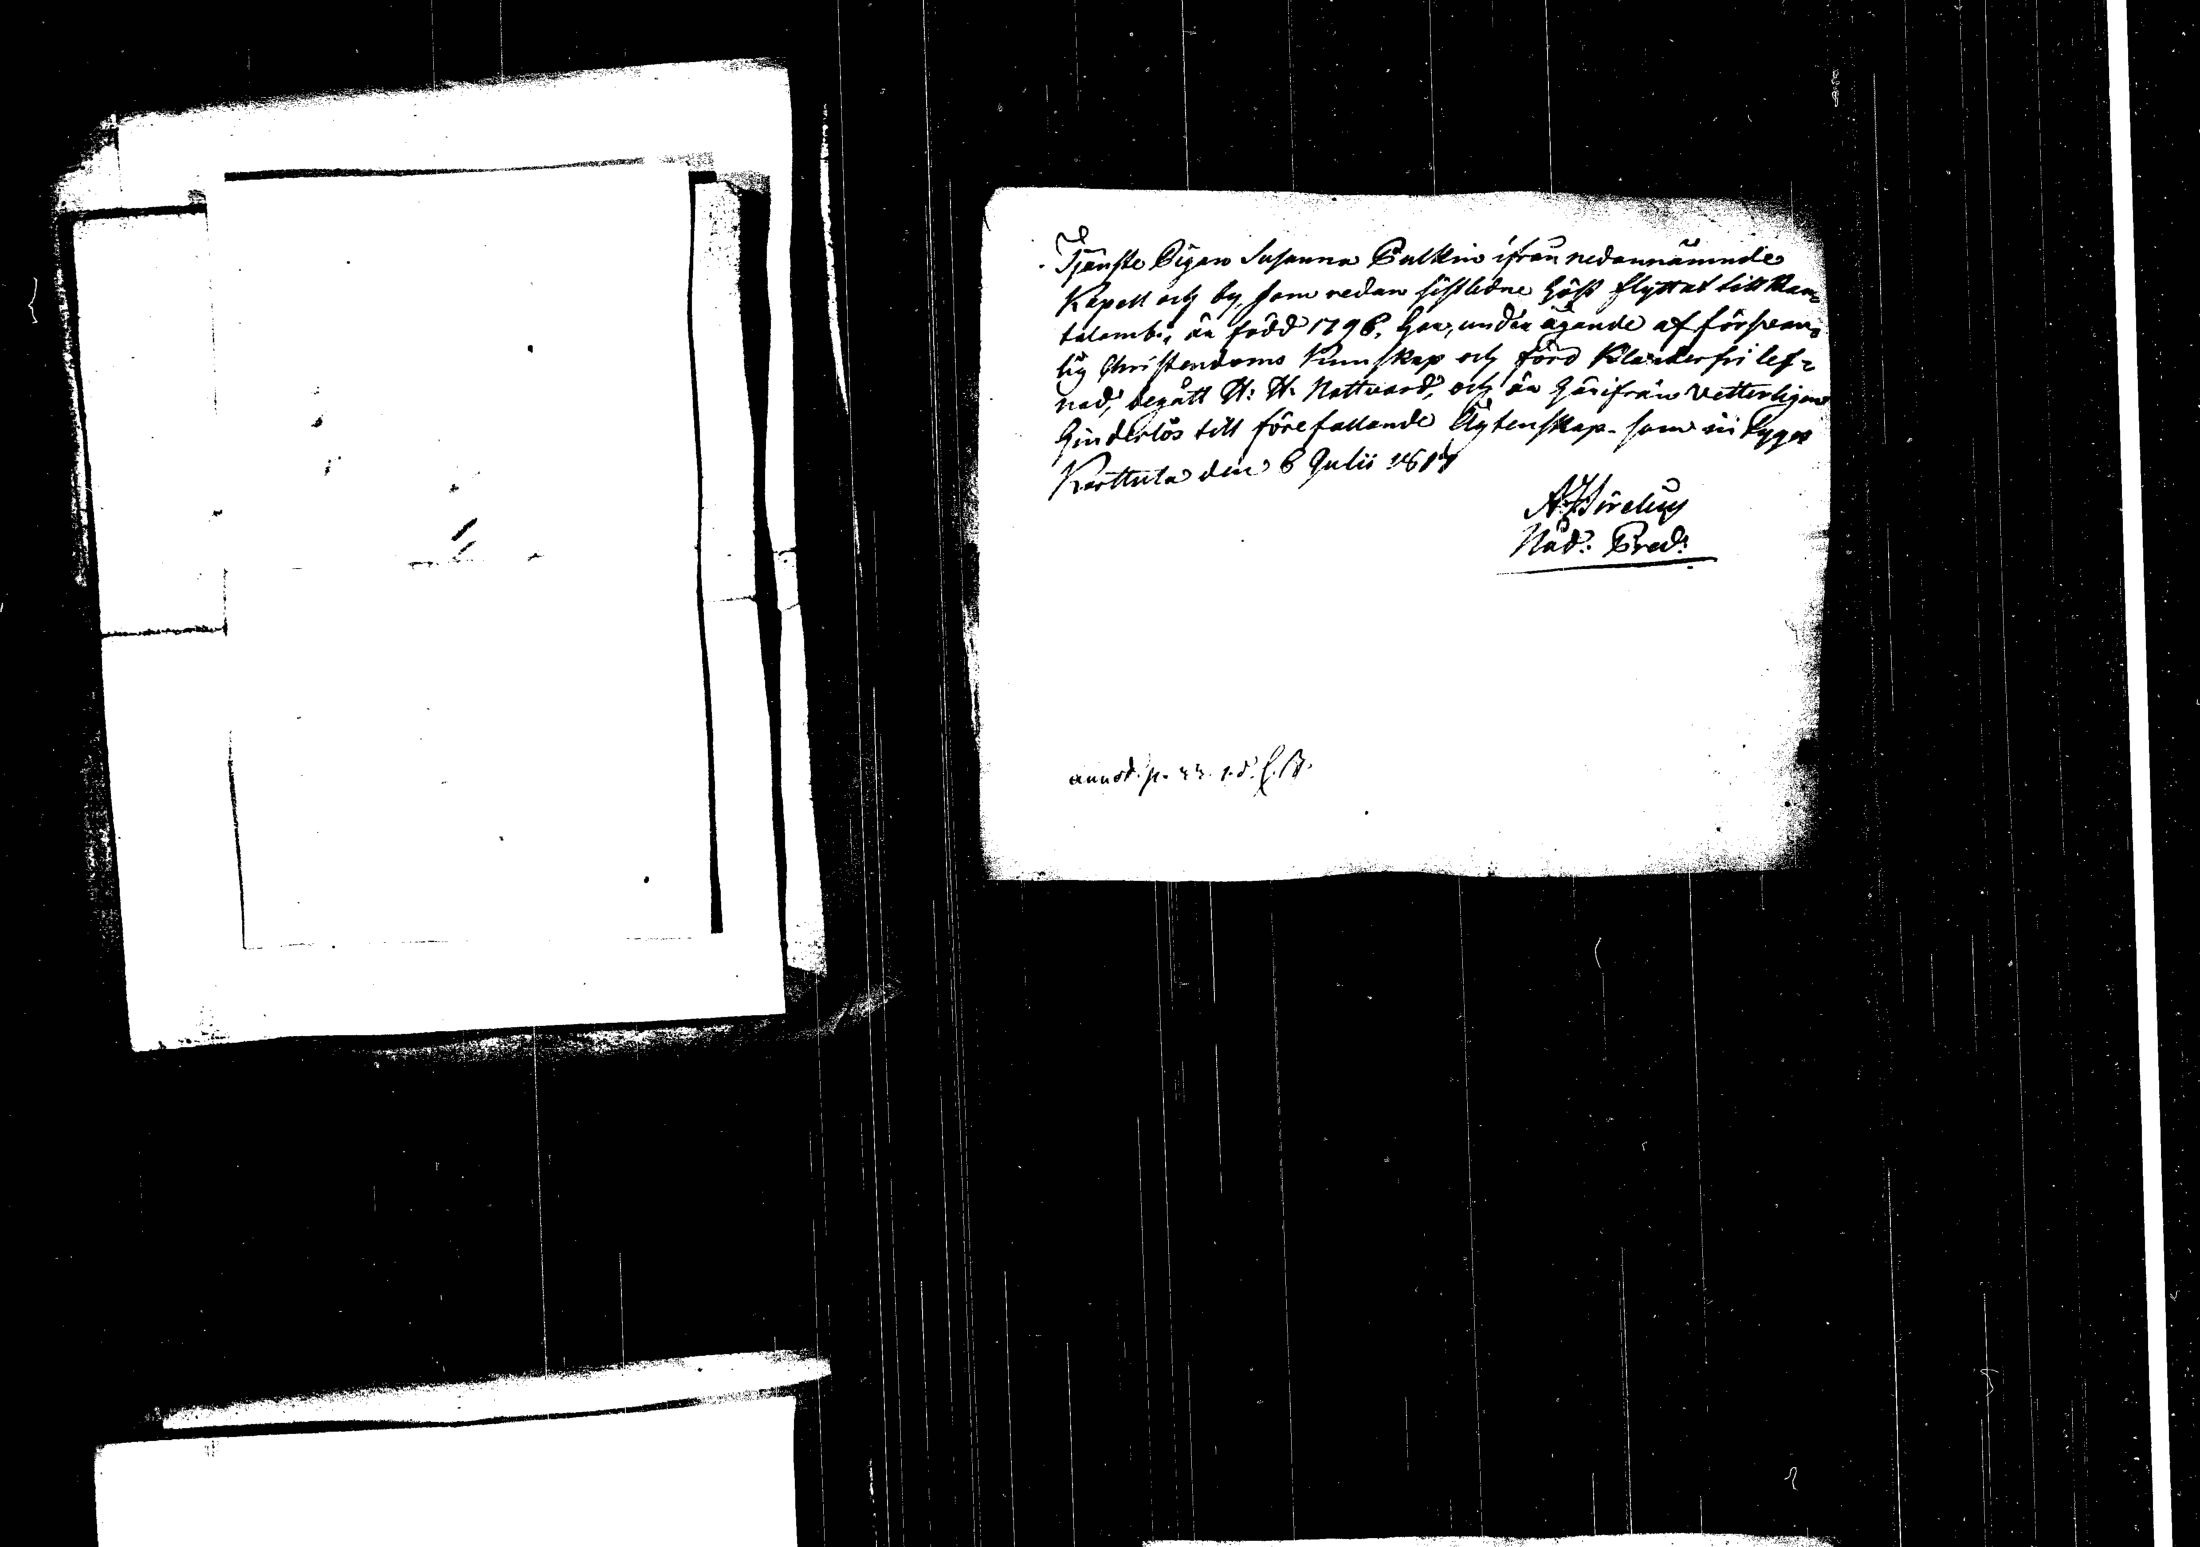 Tjenste Pigan Susanna Pulkin ifrån nedannämnde
Kapell och by, som redan sistledne höst flyttat till Rau-
talambi, är född 1796, har, under ägande af försvar-
lig Christendoms Kunskap och förd Klanderfri lef-
nad, begått H: H. Nattvard, och är härifrån vetterligen
hinderlös till förefallande Ägtenskap - som
Karttula den 6 Julii 1817
A. Hirelius
Nåd: Pred:
annot. p.